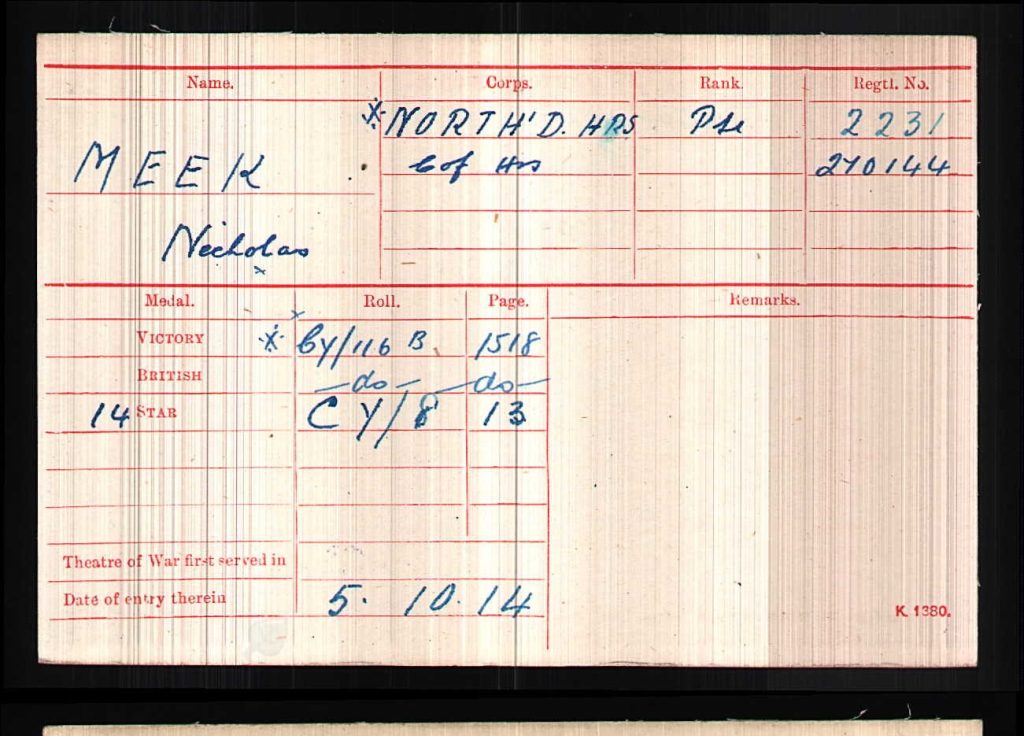 Name. Corps. Rank. Regtl. No.
* NORTH'D. HRS Pte 2231
MEEK C of Hrs 270144
Nicholas
x
Medal. Roll. Page. Remarks.
VICTORY * CY/116 B 1518
BRITISH —do— —do—
14 STAR CY/8 13
Theatre of War first served in
Date of entry therein 5. 10. 14
K. 1380.